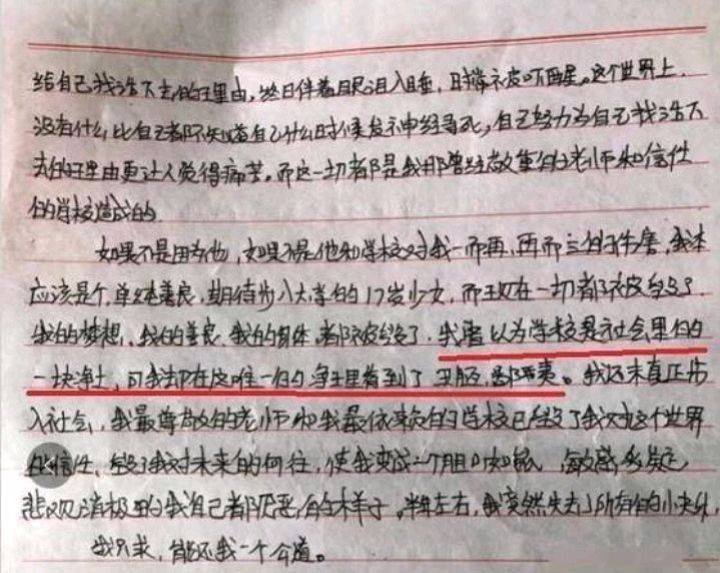 给自己找活下去的理由,终日伴着眼泪入睡,时常被吓醒。这个世界上,
没有什么比自己都不知道自己什么时候发神经寻死,自己努力为自己找活下
去的理由更让人觉得痛苦。而这一切都是我那曾经敬重的老师和信任
的学校造成的
如果不是因为他,如果不是他和学校对我一而再,再而三的伤害,我本
应该是个单纯善良,期待步入大学的17岁少女,而现在一切都被毁了
我的梦想,我的善良,我的身体,都被毁了.我曾以为学校是社会里的
一块净土,可我却在这唯一的净土里看到了丑陋,鄙夷。我还未真正步
入社会,我最尊敬的老师和我最依赖的学校已经毁了我对这个世界
的信任,毁了我对未来的向往,使我变成一个胆小如鼠,敏感,多疑
悲观消极 的我自己都厌恶的样子,半年左右,我突然失去了所有的小伙伴,
我只求,能还我一个公道。